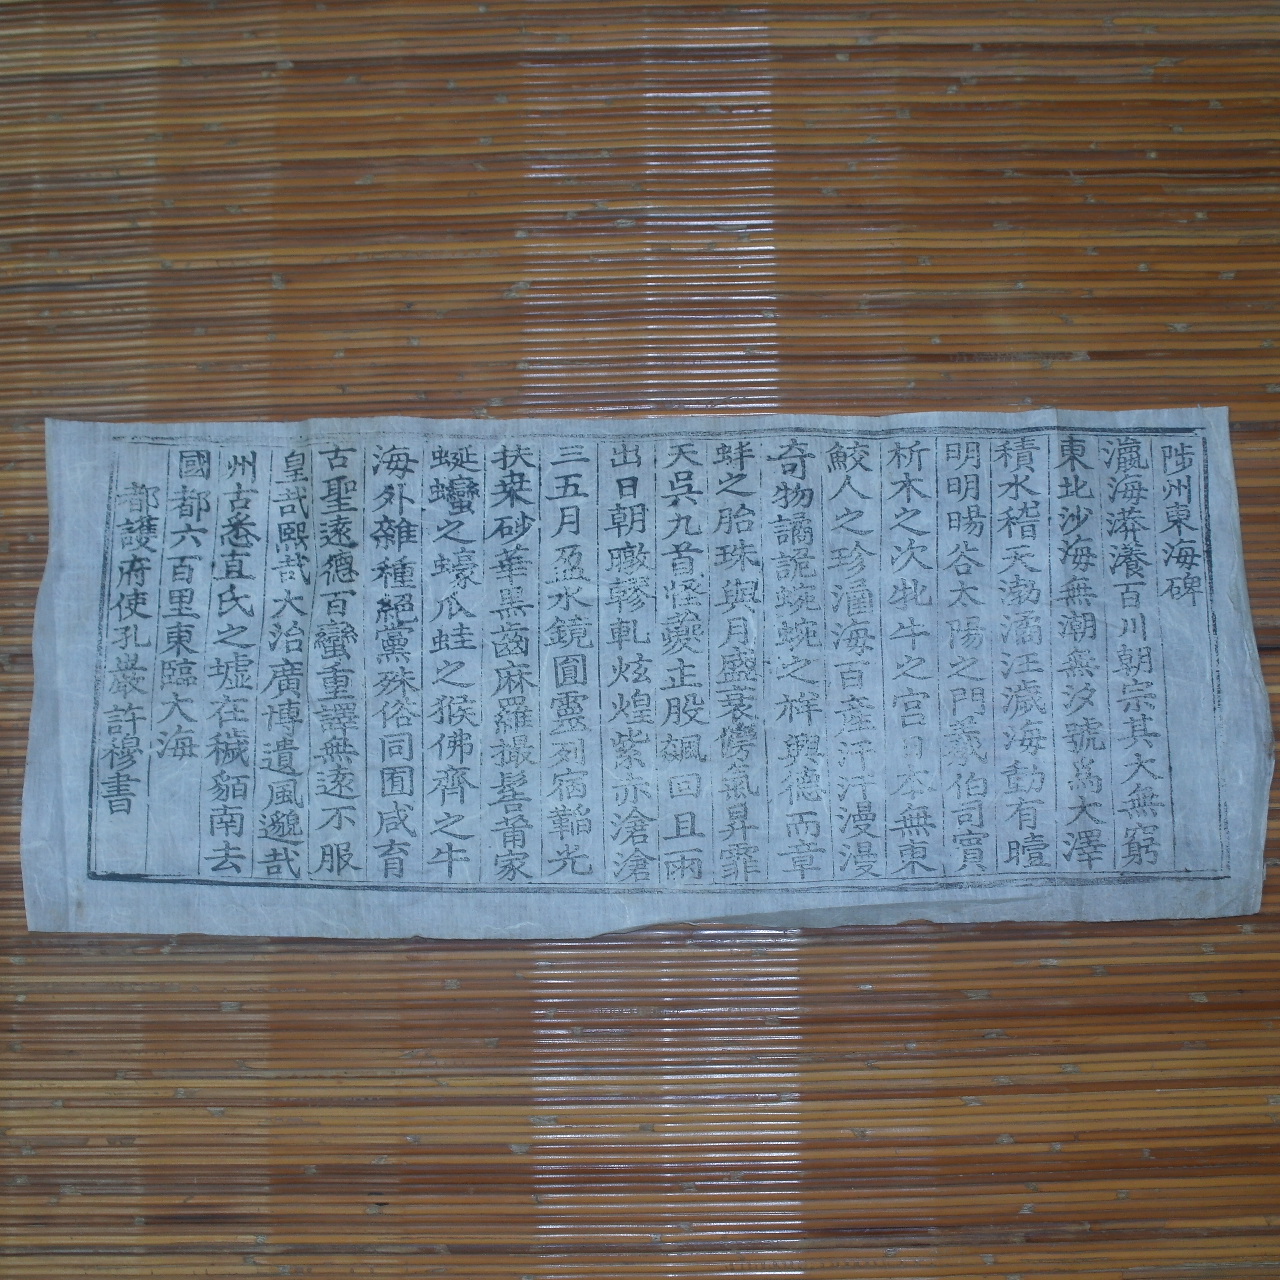 陟州東海碑
瀛海漭瀁百川朝宗其大無窮
東北沙海無潮無汐號爲大澤
積水稽天渤潏汪濊海動有曀
明明暘谷太陽之門羲伯司賓
析木之次牝牛之宮日本無東
鮫人之珍涵海百產汗汗漫漫
奇物譎詭蜿蜿之祥興德而章
蚌之胎珠與月盛衰㫄氣昇霏
天吳九首怪夔一股飆回且雨
出日朝暾轇軋炫煌紫赤滄滄
三五月盈水鏡圓靈列宿韜光
扶桒砂華黑齒麻羅撮髻莆家
蜒蠻之蠔爪蛙之猴佛齊之牛
海外雜種絕黨殊俗同囿咸育
古聖遠德百蠻重譯無遠不服
皇哉熙哉大治廣博遺風邈哉
州古悉直氏之墟在穢貊南去
國都六百里東臨大海
都護府使孔巖許穆書